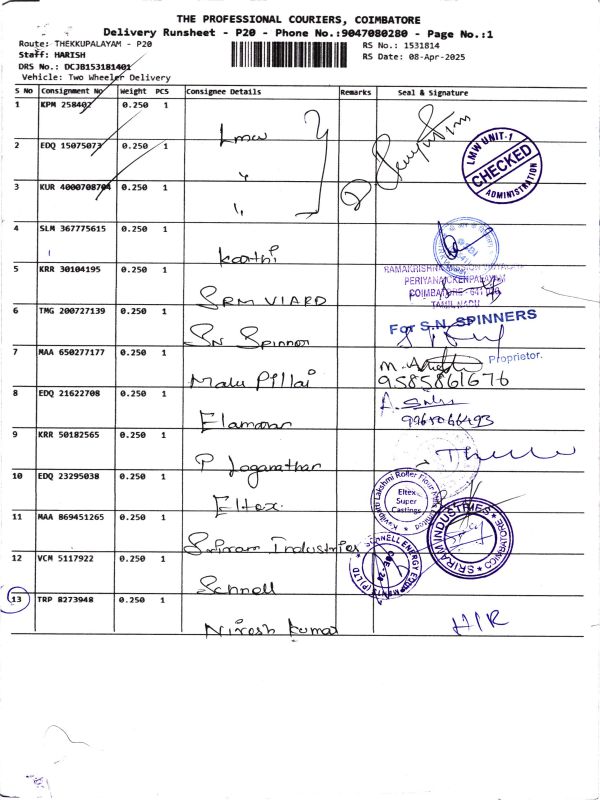 THE PROFESSIONAL COURIERS, COIMBATORE
Delivery Runsheet - P20 - Phone No.:9047080280 - Page No.:1
Route: THEKKUPALAYAM - P20
RS No.: 1531814
Staff: HARISH
RS Date: 08-Apr-2025
DRS No.: DCJB1531B1401
Vehicle: Two Wheeler Delivery
S No Consignment No Weight PCS Consignee Details Remarks Seal & Signature
1 KPM 258402 0.250 1 Lmw
LMW UNIT-1
CHECKED
ADMINISTRATION
2 EDQ 15075073 0.250 1 "
3 KUR 4000708704 0.250 1 "
4 SLM 367775615 0.250 1 Karthi
5 KRR 30104195 0.250 1 SRM VIARD
PERIYANAICKENPALAYAM
COIMBATORE
TAMIL NADU
6 TMG 200727139 0.250 1 SN Spinner
For S.N. SPINNERS
Proprietor.
7 MAA 650277177 0.250 1 Malu Pillai
9585861676
8 EDQ 21622708 0.250 1
9 KRR 50182565 0.250 1 P Loganathan
10 EDQ 23295038 0.250 1 Eltex
Eltex
Super
Castings
11 MAA 869451265 0.250 1 Sriram Industries
SRIRAM INDUSTRIES
12 VCM 5117922 0.250 1 Schnell
13 TRP 8273948 0.250 1 Nirosh Kumar